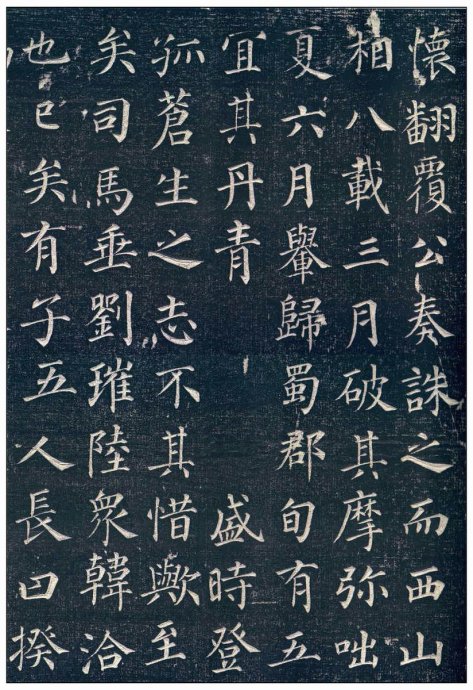 懷翻覆公奏誅之而西山
相八載三月破其摩弥咄
夏六月轝歸蜀郡旬有五
冝其丹青　　　盛時登
孤蒼生之志不其惜歟至
矣司馬垂劉璀陸衆韓洽
也已矣有子五人長曰揆